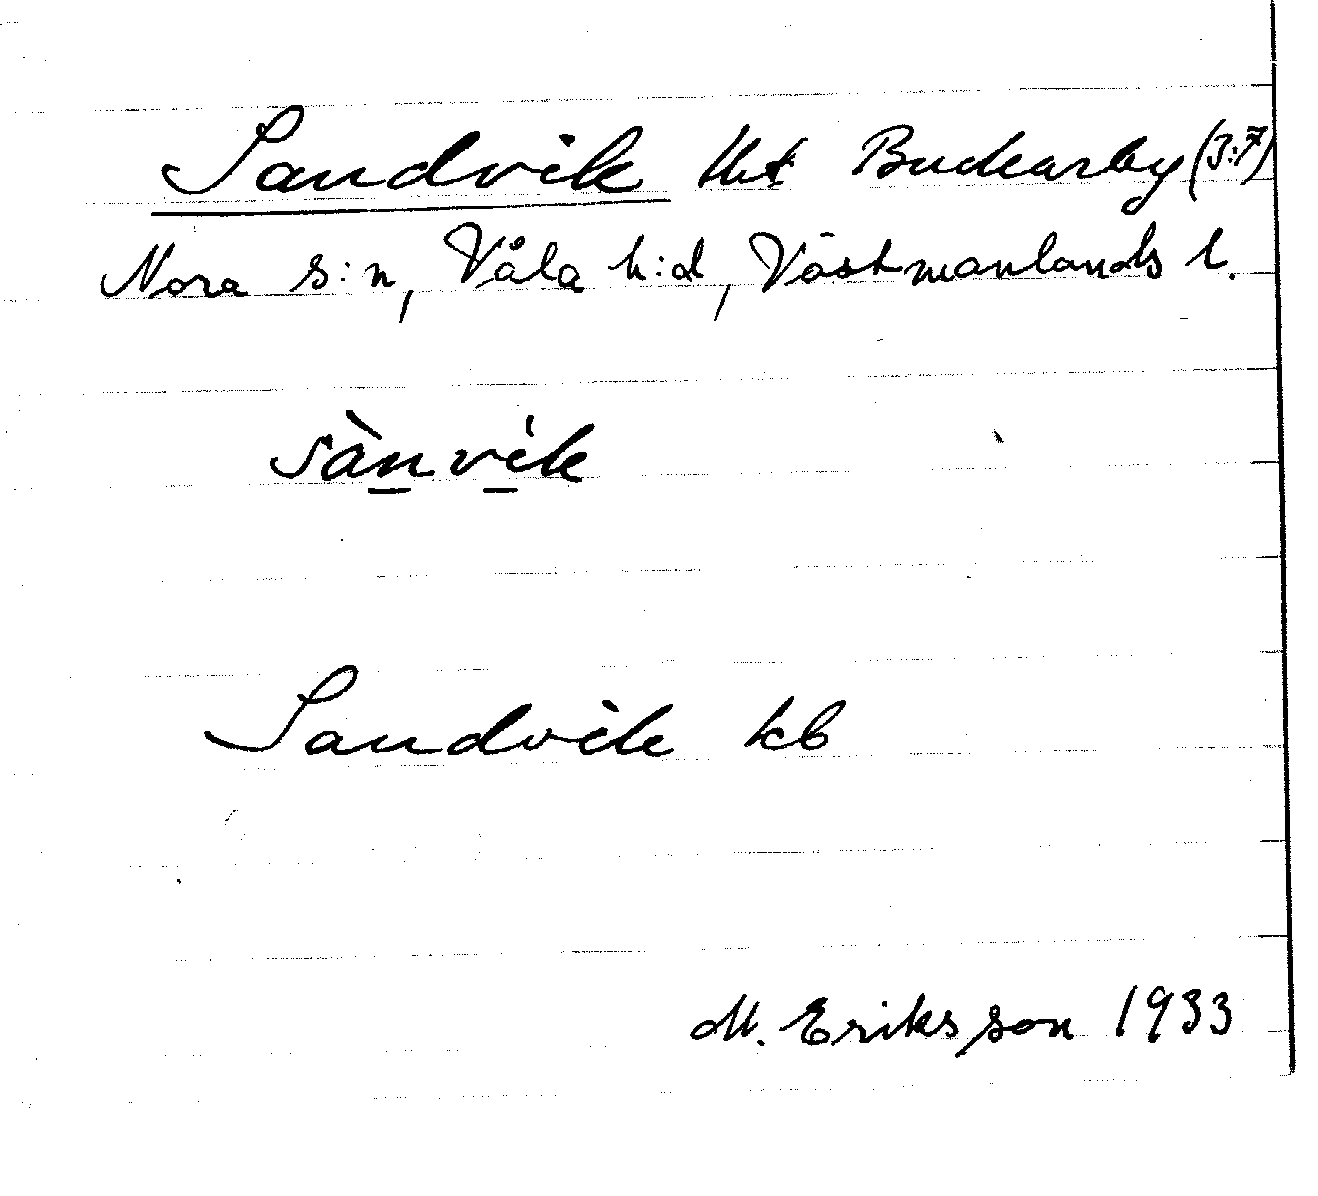 Sandvik tht Buckarby (3:7)
Nora s:n, Våla h:d, Västmanlands l.
sànvik
Sandvik kb
M. Eriksson 1933